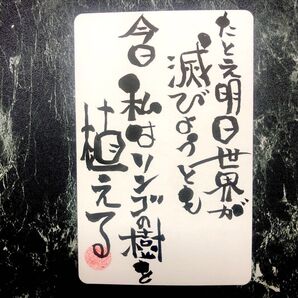 たとえ明日世界が
滅びようとも
今日私はリンゴの樹を
植える